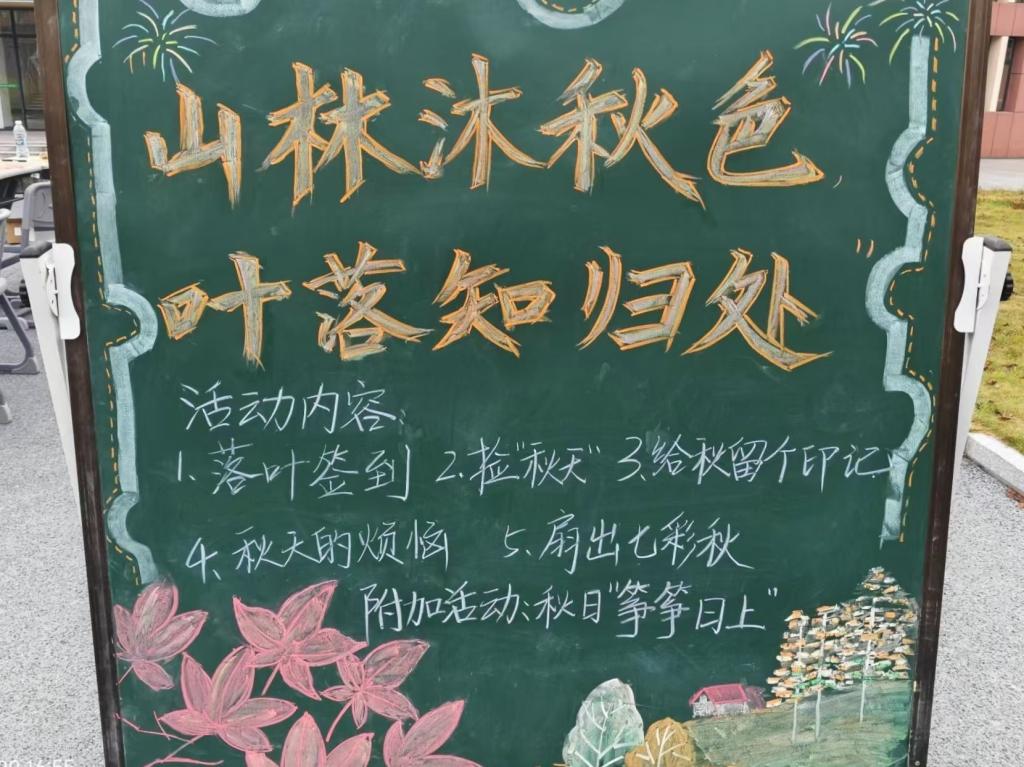 山林沐秋色
叶落知归处
活动内容:
1.落叶签到 2.捡"秋天" 3.给秋留个印记
4.秋天的烦恼 5.扇出七彩秋
附加活动:秋日"筝筝日上"